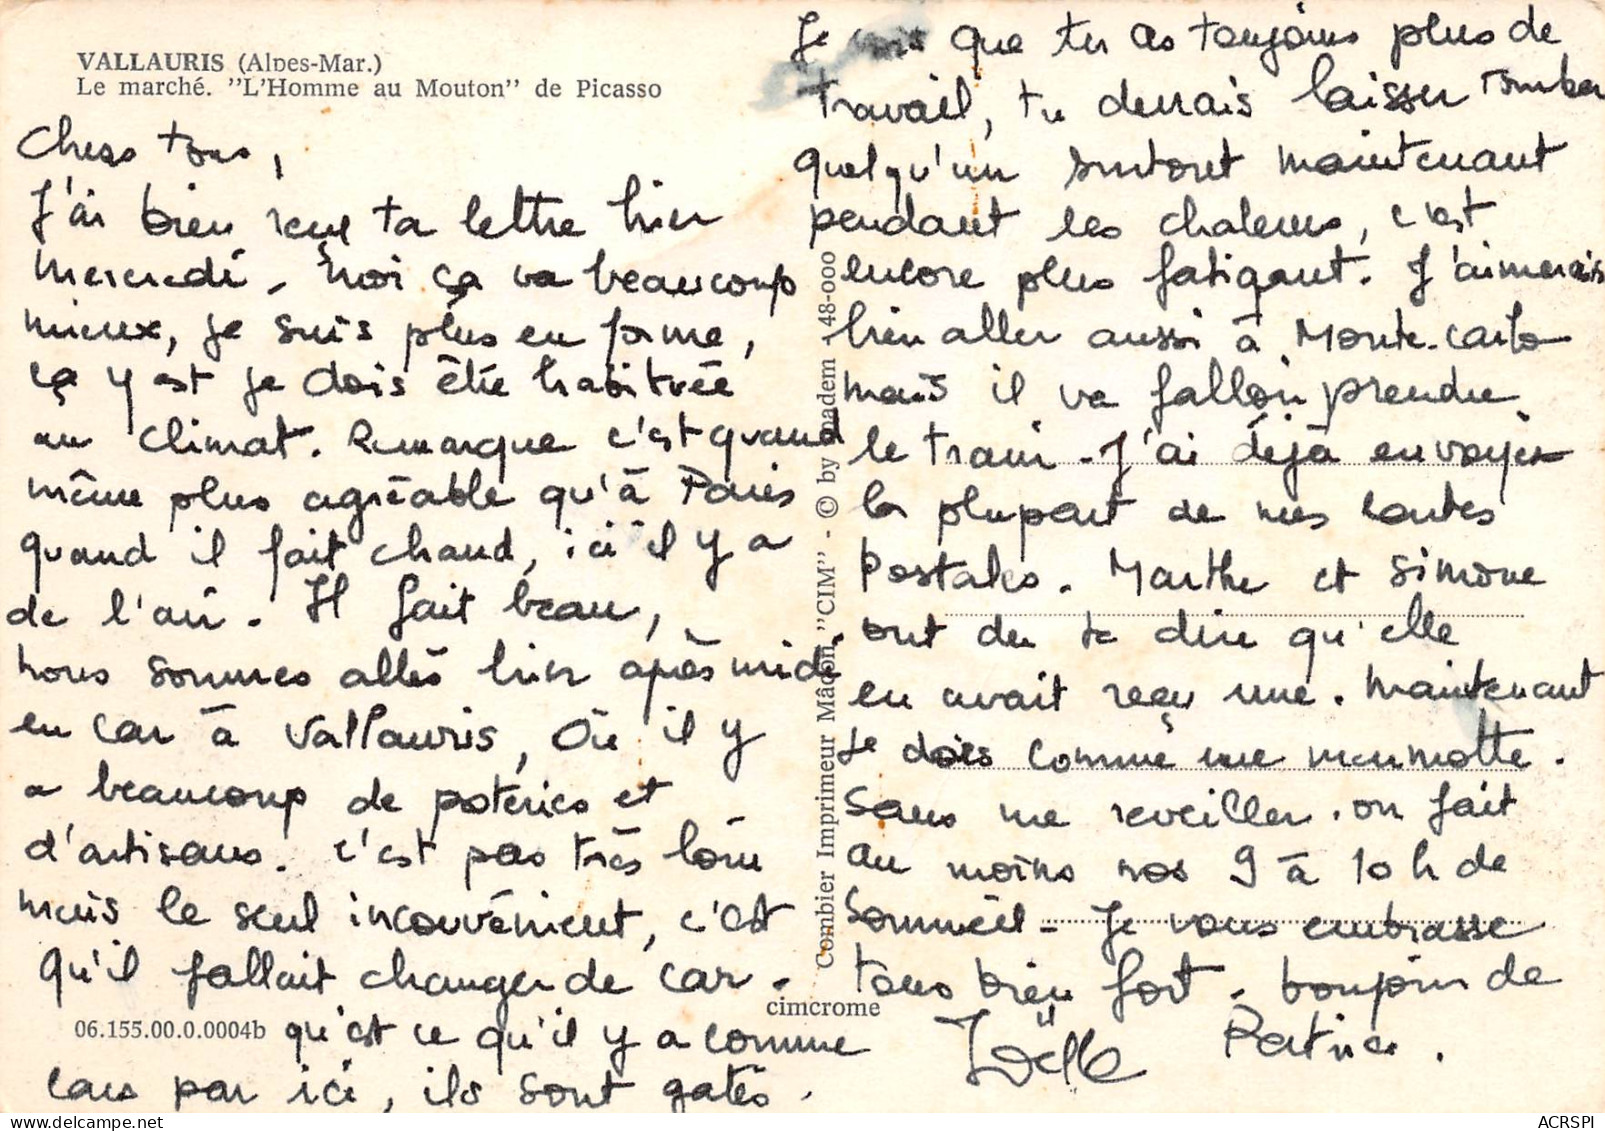 VALLAURIS (Alpes-Mar.)
Le marché. "L'Homme au Mouton" de Picasso
Chers tous,
J'ai bien reçu ta lettre hier
mercredi - moi ça va beaucoup
mieux, je suis plus en forme,
ça y est je dois être habituée
au climat. Remarque c'est quand
même plus agréable qu'à Paris
quand il fait chaud, ici il y a
de l'air. Il fait beau,
nous sommes allés hier après midi
en car à Vallauris, où il y
a beaucoup de poteries et
d'artisans. c'est pas très loin
mais le seul inconvénient, c'est
qu'il fallait changer de car.
qu'est ce qu'il y a comme
cars par ici, ils sont gatés.
06.155.00.0.0004b
Combier Imprimeur Mâcon "CIM" - © by 48-000
cimcrome
Je que tu as toujours plus de
travail, tu devrais laisser tomber
quelqu'un surtout maintenant
pendant les chaleurs, c'est
encore plus fatigant. J'aimerais
bien aller aussi à Monte-Carlo
mais il va falloir prendre
le train - J'ai déjà envoyer
la plupart de mes cartes
postales. Marthe et Simone
ont du te dire qu'elle
en avait reçu une. Maintenant
je dors comme une marmotte.
sans me reveiller. on fait
au moins nos 9 à 10 h de
sommeil - Je vous embrasse
tous bien fort. bonjour de
Joëlle Patrice.
ACRSPI